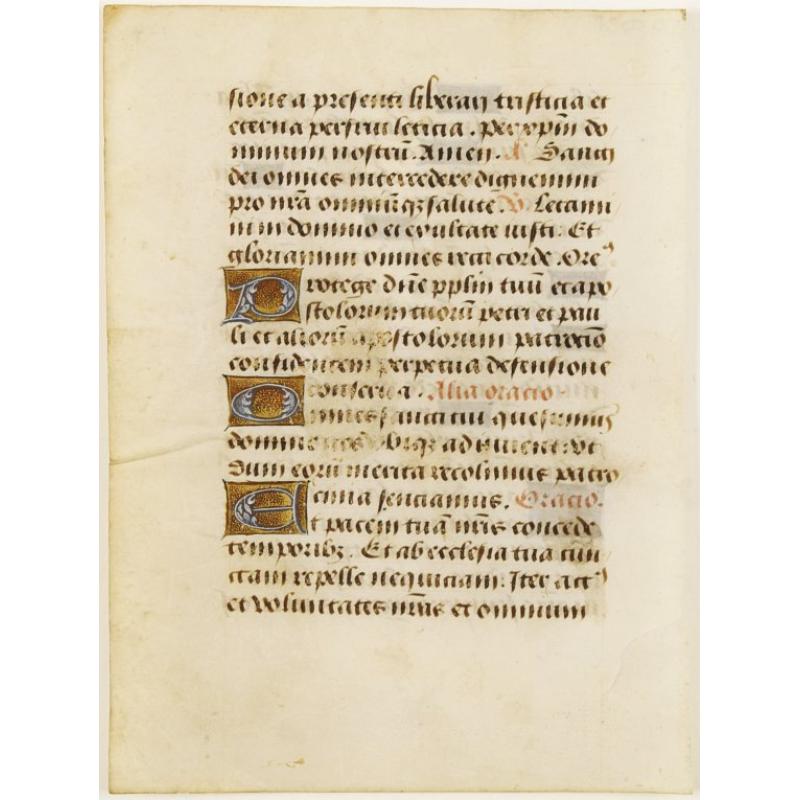 sione a presenti liberari tristicia et
eterna perfrui leticia. Per xpm do
minum nostrū. Amen. A Sancti
dei omnes intercedere dignemini
pro nrā omniūqȝ salute. V. Letami
ni in domino et exultate iusti. Et
gloriamini omnes recti corde. Ore
Protege dne pplm tuū et apo
stolorum tuorū petri et pau
li et aliorū apostolorum patrocīo
confidentem perpetua defensione
conserua. Alia oratio.
Omnes sancti tui quesumus
domine nos vbiqȝ adiuuent vt
Dum eorū merita recolimus patro
cinia senciamus. Oracio.
Et pacem tuā nrīs concede
temporibȝ. Et ab ecclesia tua cun
ctam repelle nequiciam. Iter act
et voluntates nrās et omnium